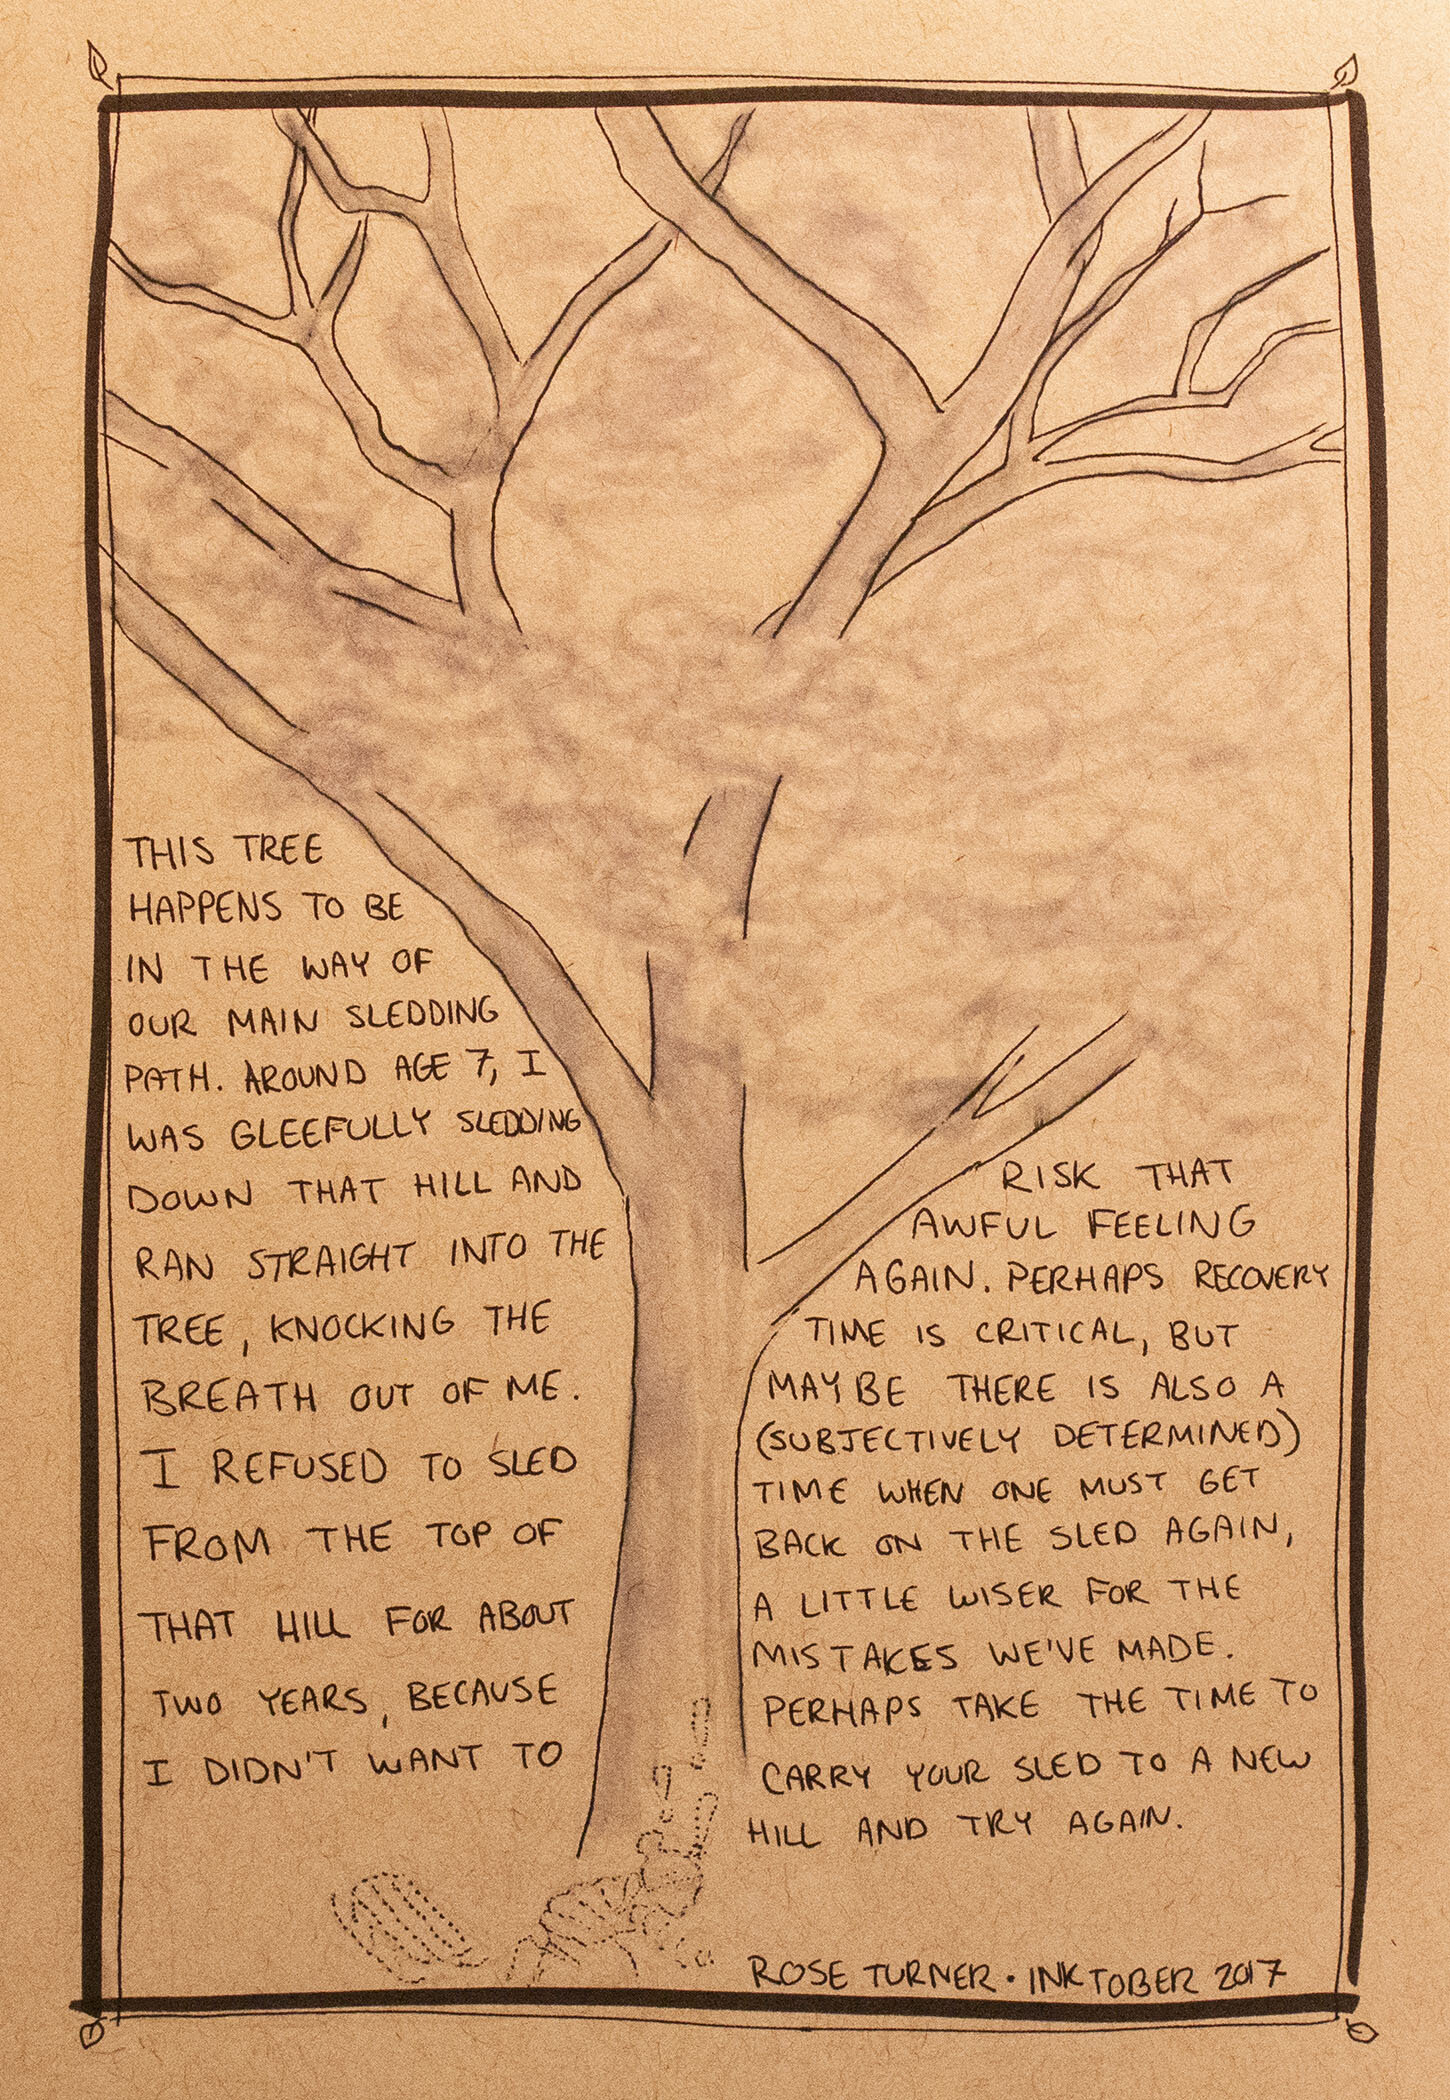 THIS TREE
HAPPENS TO BE
IN THE WAY OF
OUR MAIN SLEDDING
PATH. AROUND AGE 7, I
WAS GLEEFULLY SLEDDING
DOWN THAT HILL AND
RAN STRAIGHT INTO THE
TREE, KNOCKING THE
BREATH OUT OF ME.
I REFUSED TO SLED
FROM THE TOP OF
THAT HILL FOR ABOUT
TWO YEARS, BECAUSE
I DIDN'T WANT TO
RISK THAT
AWFUL FEELING
AGAIN. PERHAPS RECOVERY
TIME IS CRITICAL, BUT
MAYBE THERE IS ALSO A
(SUBJECTIVELY DETERMINED)
TIME WHEN ONE MUST GET
BACK ON THE SLED AGAIN,
A LITTLE WISER FOR THE
MISTAKES WE'VE MADE.
PERHAPS TAKE THE TIME TO
CARRY YOUR SLED TO A NEW
HILL AND TRY AGAIN.
ROSE TURNER • INKTOBER 2017